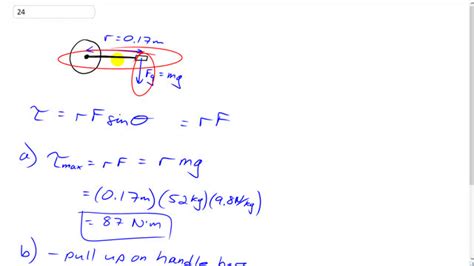 24
r = 0.17m
Fg = mg
τ = rFsinθ = rF
a) τmax = rF = r mg
= (0.17m)(52kg)(9.8N/kg)
= 87 N·m
b) - pull up on handle bars